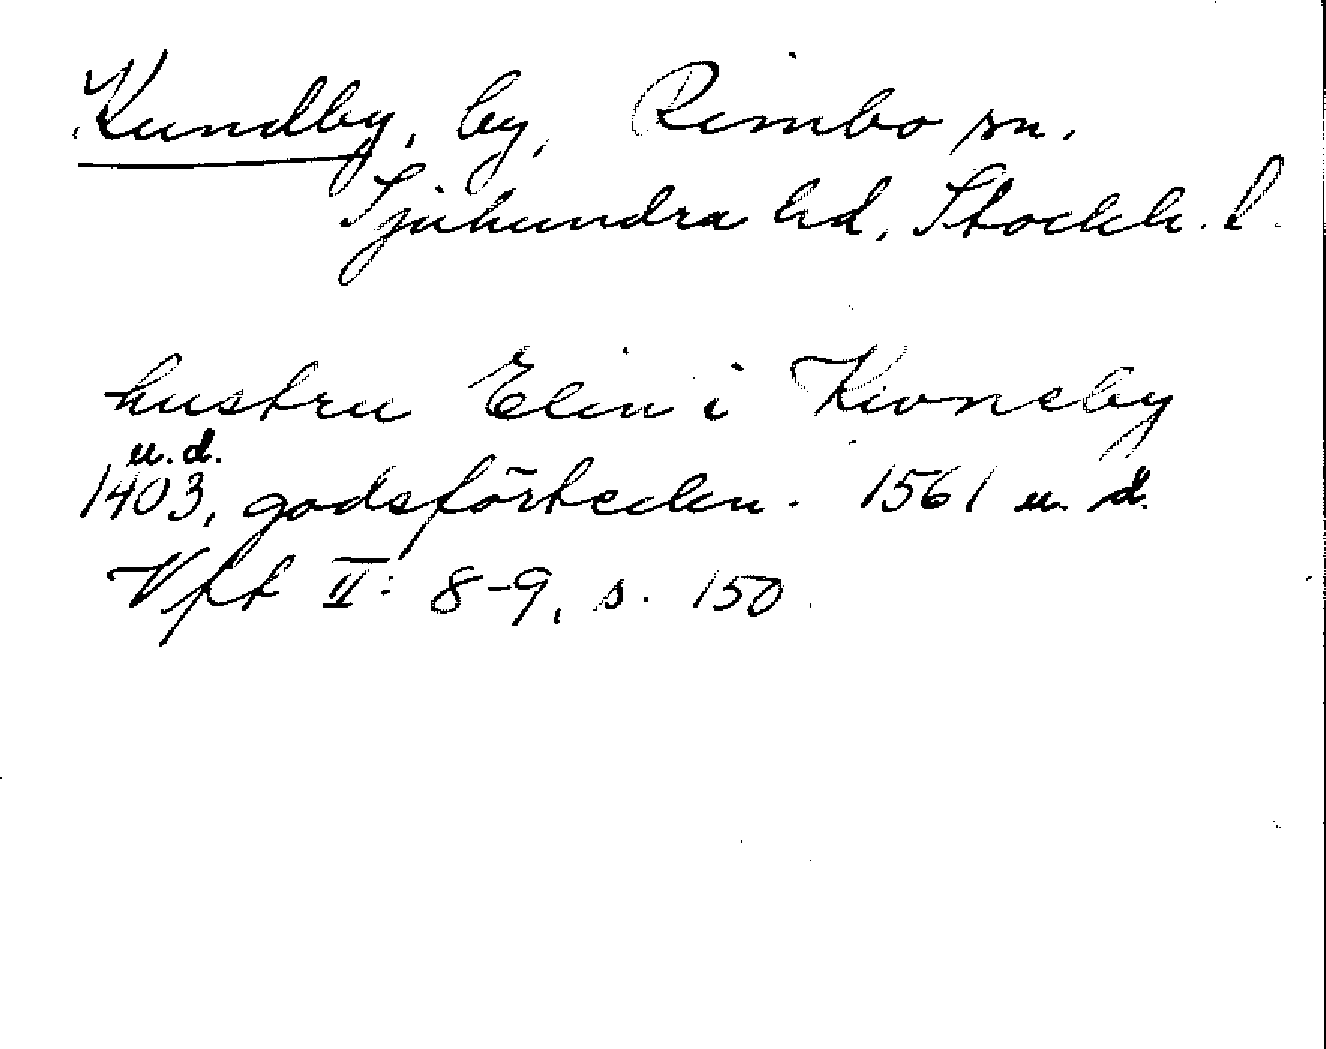 Kundby, by, Rimbo sn.
Sjuhundra hd, Stockh. l.
hustru Elin i Kwneby
u.d.
1403, godsförteckn. 1561 u. d.
Vft II: 8-9, s. 150